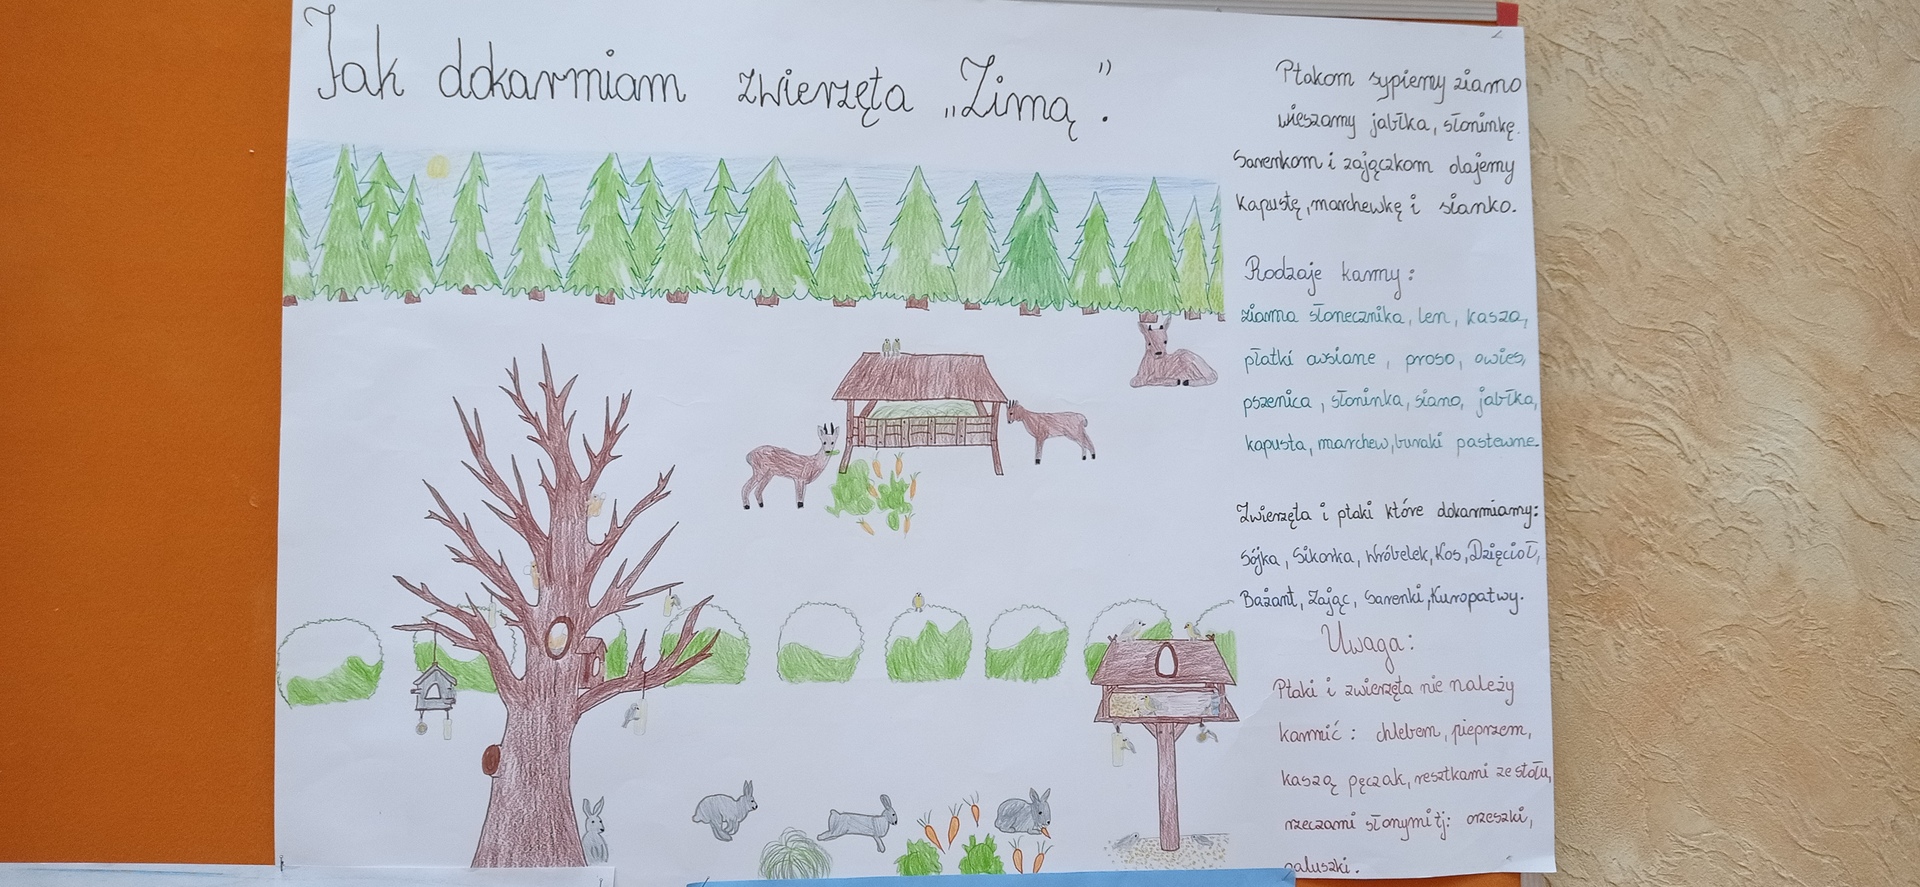 Jak dokarmiam zwierzęta „Zimą”.
Ptakom sypiemy ziarno
wieszamy jabłka, słoninkę.
Sarenkom i zajączkom dajemy
kapustę, marchewkę i sianko.
Rodzaje karmy:
ziarna słonecznika, len, kasza,
płatki owsiane, proso, owies,
pszenica, słoninka, siano, jabłka,
kapusta, marchew, buraki pastewne.
Zwierzęta i ptaki które dokarmiamy:
Sójka, Sikorka, Wróbelek, Kos, Dzięcioł,
Bażant, Zając, Sarenki, Kuropatwy.
Uwaga:
Ptaki i zwierzęta nie należy
karmić: chlebem, pieprzem,
kaszą pęczak, resztkami ze stołu,
rzeczami słonymi tj: orzeszki,
paluszki.